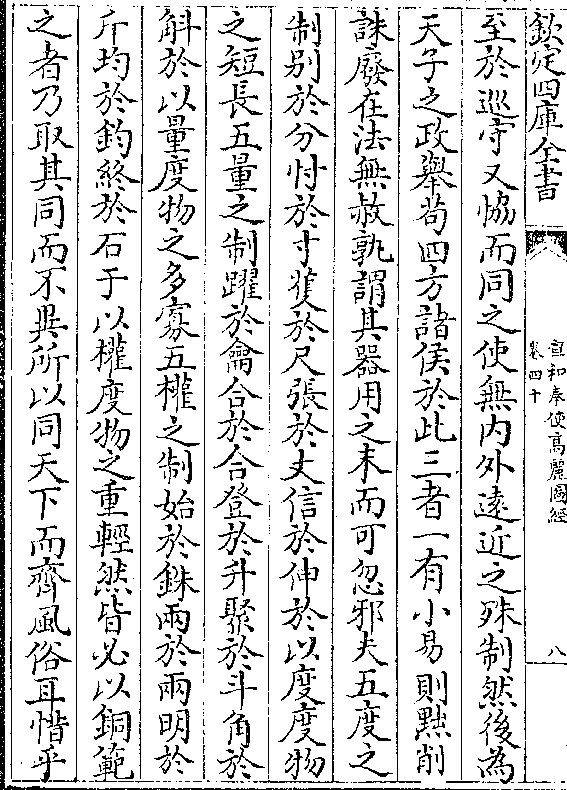 欽定四庫全書
宣和奉使高麗圖經
卷四十
八
至於巡守又恊而同之使無内外逺近之殊制然後為
天子之政舉茍四方諸侯於此三者一有小易則黜削
誅廢在法無赦孰謂其器用之末而可忽邪夫五度之
制别於分忖於寸蒦於尺張於丈信於伸於以度度物
之短長五量之制躍於龠合於合登於升聚於斗角於
斛於以量度物之多寡五權之制始於銖兩於兩明於
斤均於鈞終於石于以權度物之重輕然皆必以銅範
之者乃取其同而不異所以同天下而齊風俗耳惜乎